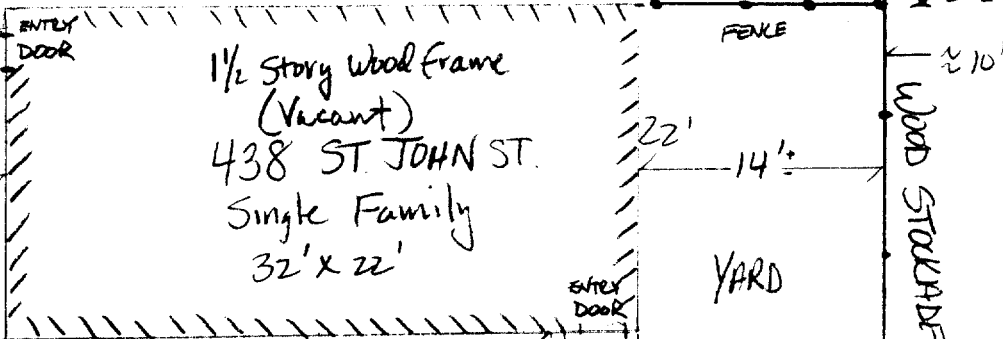 ENTRY
DOOR
1½ Story Wood Frame
(Vacant)
438 ST. JOHN ST.
Single Family
32' x 22'
ENTRY
DOOR
22'
FENCE
14'±
YARD
≈ 10'
WOOD STOCKADE